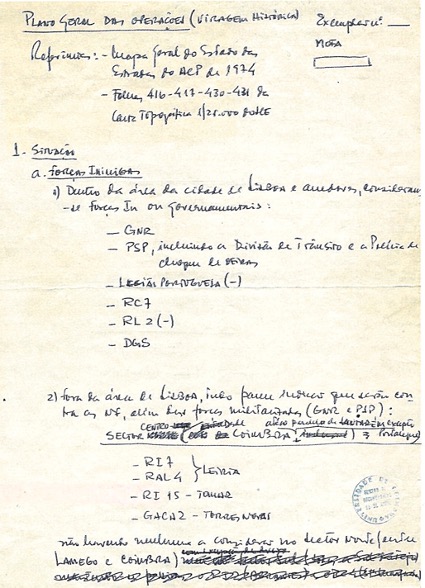 PLANO GERAL DAS OPERAÇÕES (VIRAGEM HISTÓRICA)
Exemplar nº
NOTA
Referências: - Mapa Geral do Estado das
Estradas do ACP de 1974
- Folhas 416-417-430-431 da
Carta Topográfica 1/25.000 do SCE
1. SITUAÇÃO
a. FORÇAS INIMIGAS
1) Dentro da área da cidade de Lisboa e arredores, consideram
-se forças In ou governamentais:
- GNR
- PSP, incluindo a Divisão de Trânsito e a Polícia de
choque de
- LEGIÃO PORTUGUESA (-)
- RC7
- RL2 (-)
- DGS
2) Fora da área de LISBOA, que serão con
tra as NF, além das forças militarizadas (GNR e PSP):
CENTRO SANTARÉM
SECTOR COIMBRA
- RI7
- RAL4 } LEIRIA
- RI 15 - TOMAR
- GACA2 - TORRES NOVAS
não havendo nenhuma a considerar no sector Norte
LAMEGO e COIMBRA)
UNIVERSIDADE DE
CENTRO DE
DOCUMENTAÇÃO
25 DE ABRIL